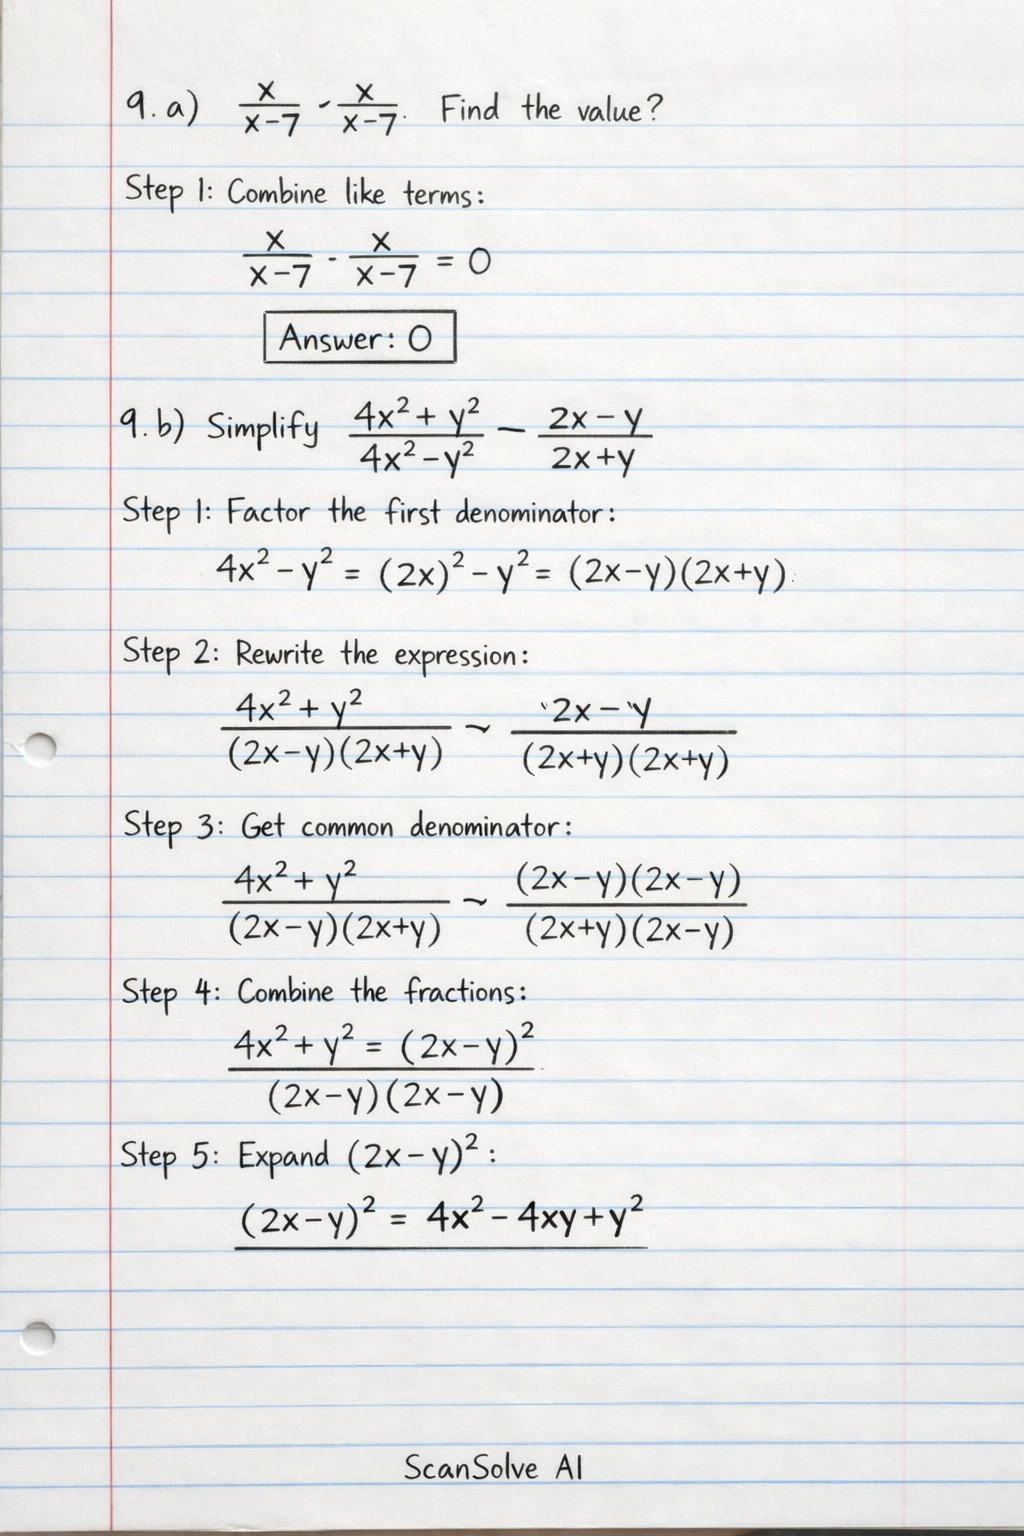 9. a) x/(x-7) - x/(x-7). Find the value?
Step 1: Combine like terms:
x/(x-7) - x/(x-7) = 0
Answer: 0
9. b) Simplify (4x² + y²)/(4x² - y²) — (2x - y)/(2x+y)
Step 1: Factor the first denominator:
4x² - y² = (2x)² - y² = (2x-y)(2x+y).
Step 2: Rewrite the expression:
(4x² + y²)/((2x-y)(2x+y)) ~ (2x - y)/((2x+y)(2x+y))
Step 3: Get common denominator:
(4x² + y²)/((2x-y)(2x+y)) ~ ((2x-y)(2x-y))/((2x+y)(2x-y))
Step 4: Combine the fractions:
(4x² + y² = (2x-y)²)/((2x-y)(2x-y))
Step 5: Expand (2x-y)²:
(2x-y)² = 4x² - 4xy + y²
ScanSolve AI